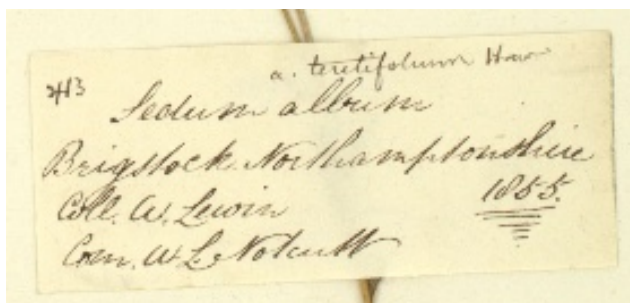 a. teretifolium Haw
413
Sedum album
Brigstock Northamptonshire
Coll. W. Lewin
1855.
Com. W. L. Notcutt